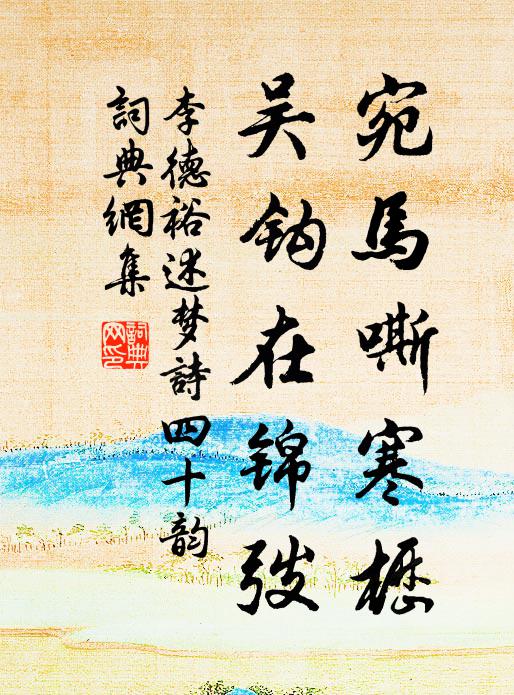 宛馬嘶寒櫪
吴鈎在錦弢
李德裕述梦詩四十韵
詞典網集
詞典網印